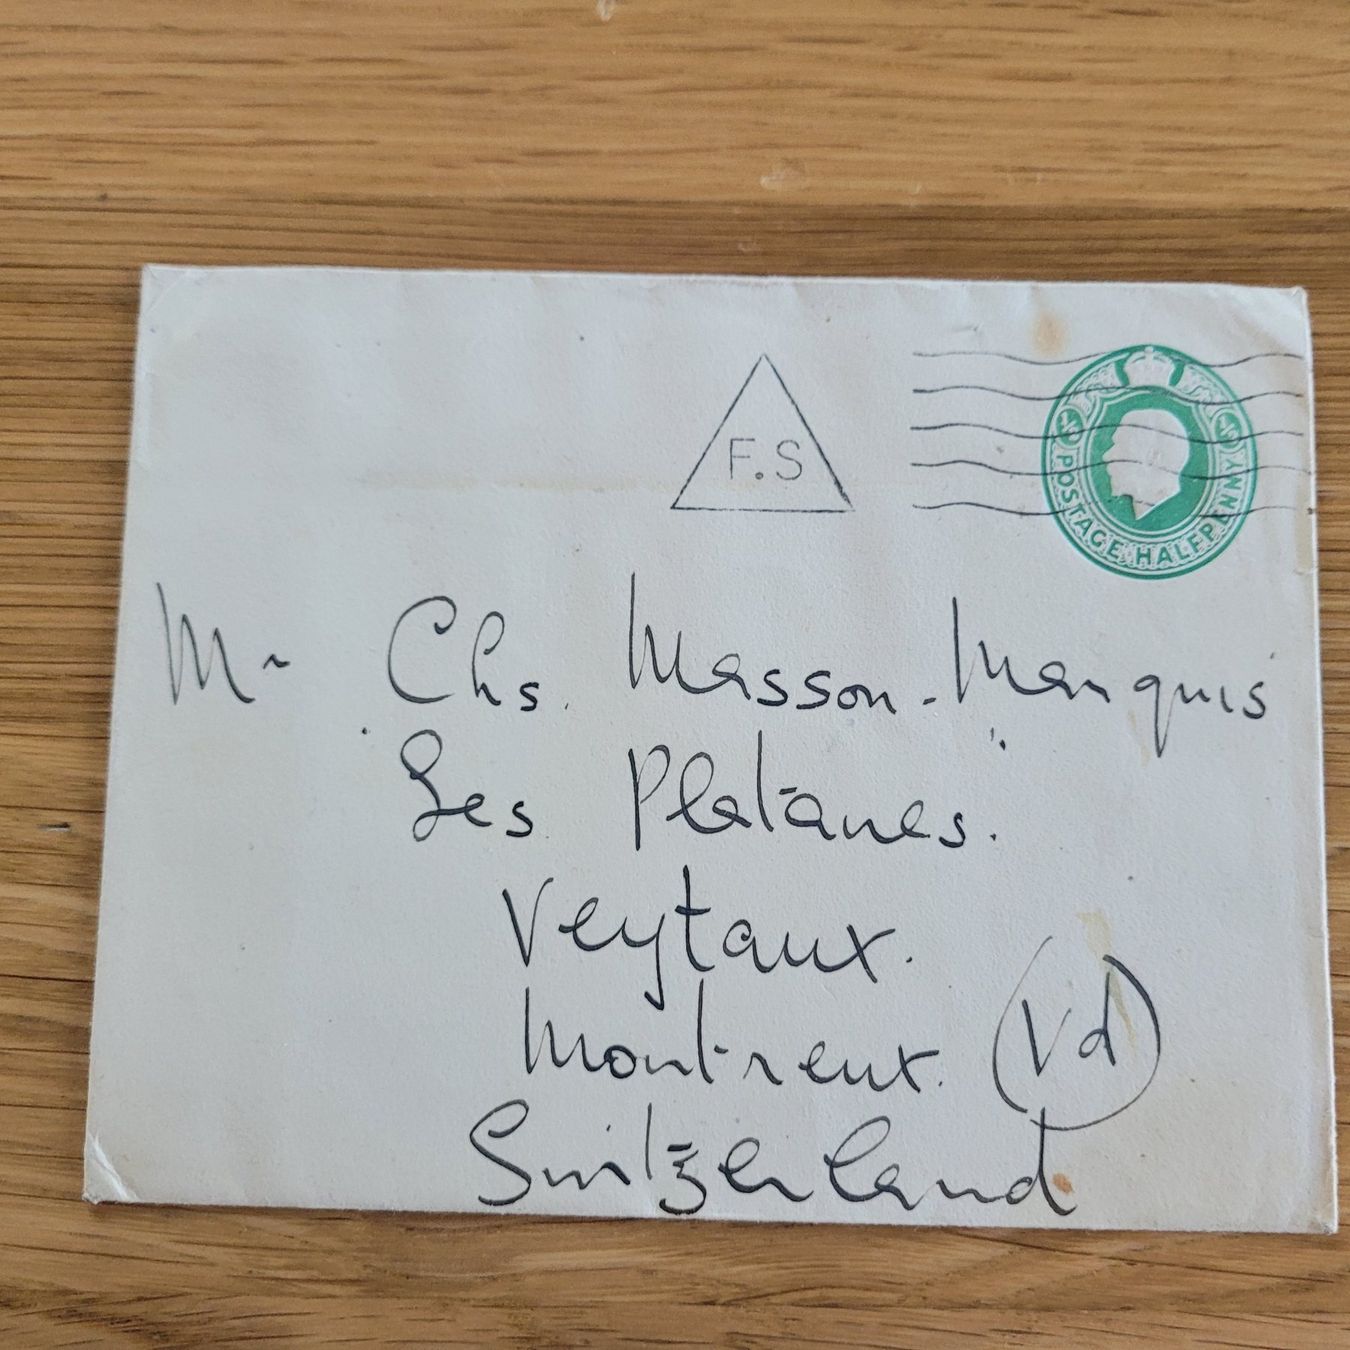 F.S
½ ½
POSTAGE HALFPENNY
Mr Chs. Masson-Marquis
"Les Platanes."
Veytaux.
Montreux. (Vd)
Switzerland